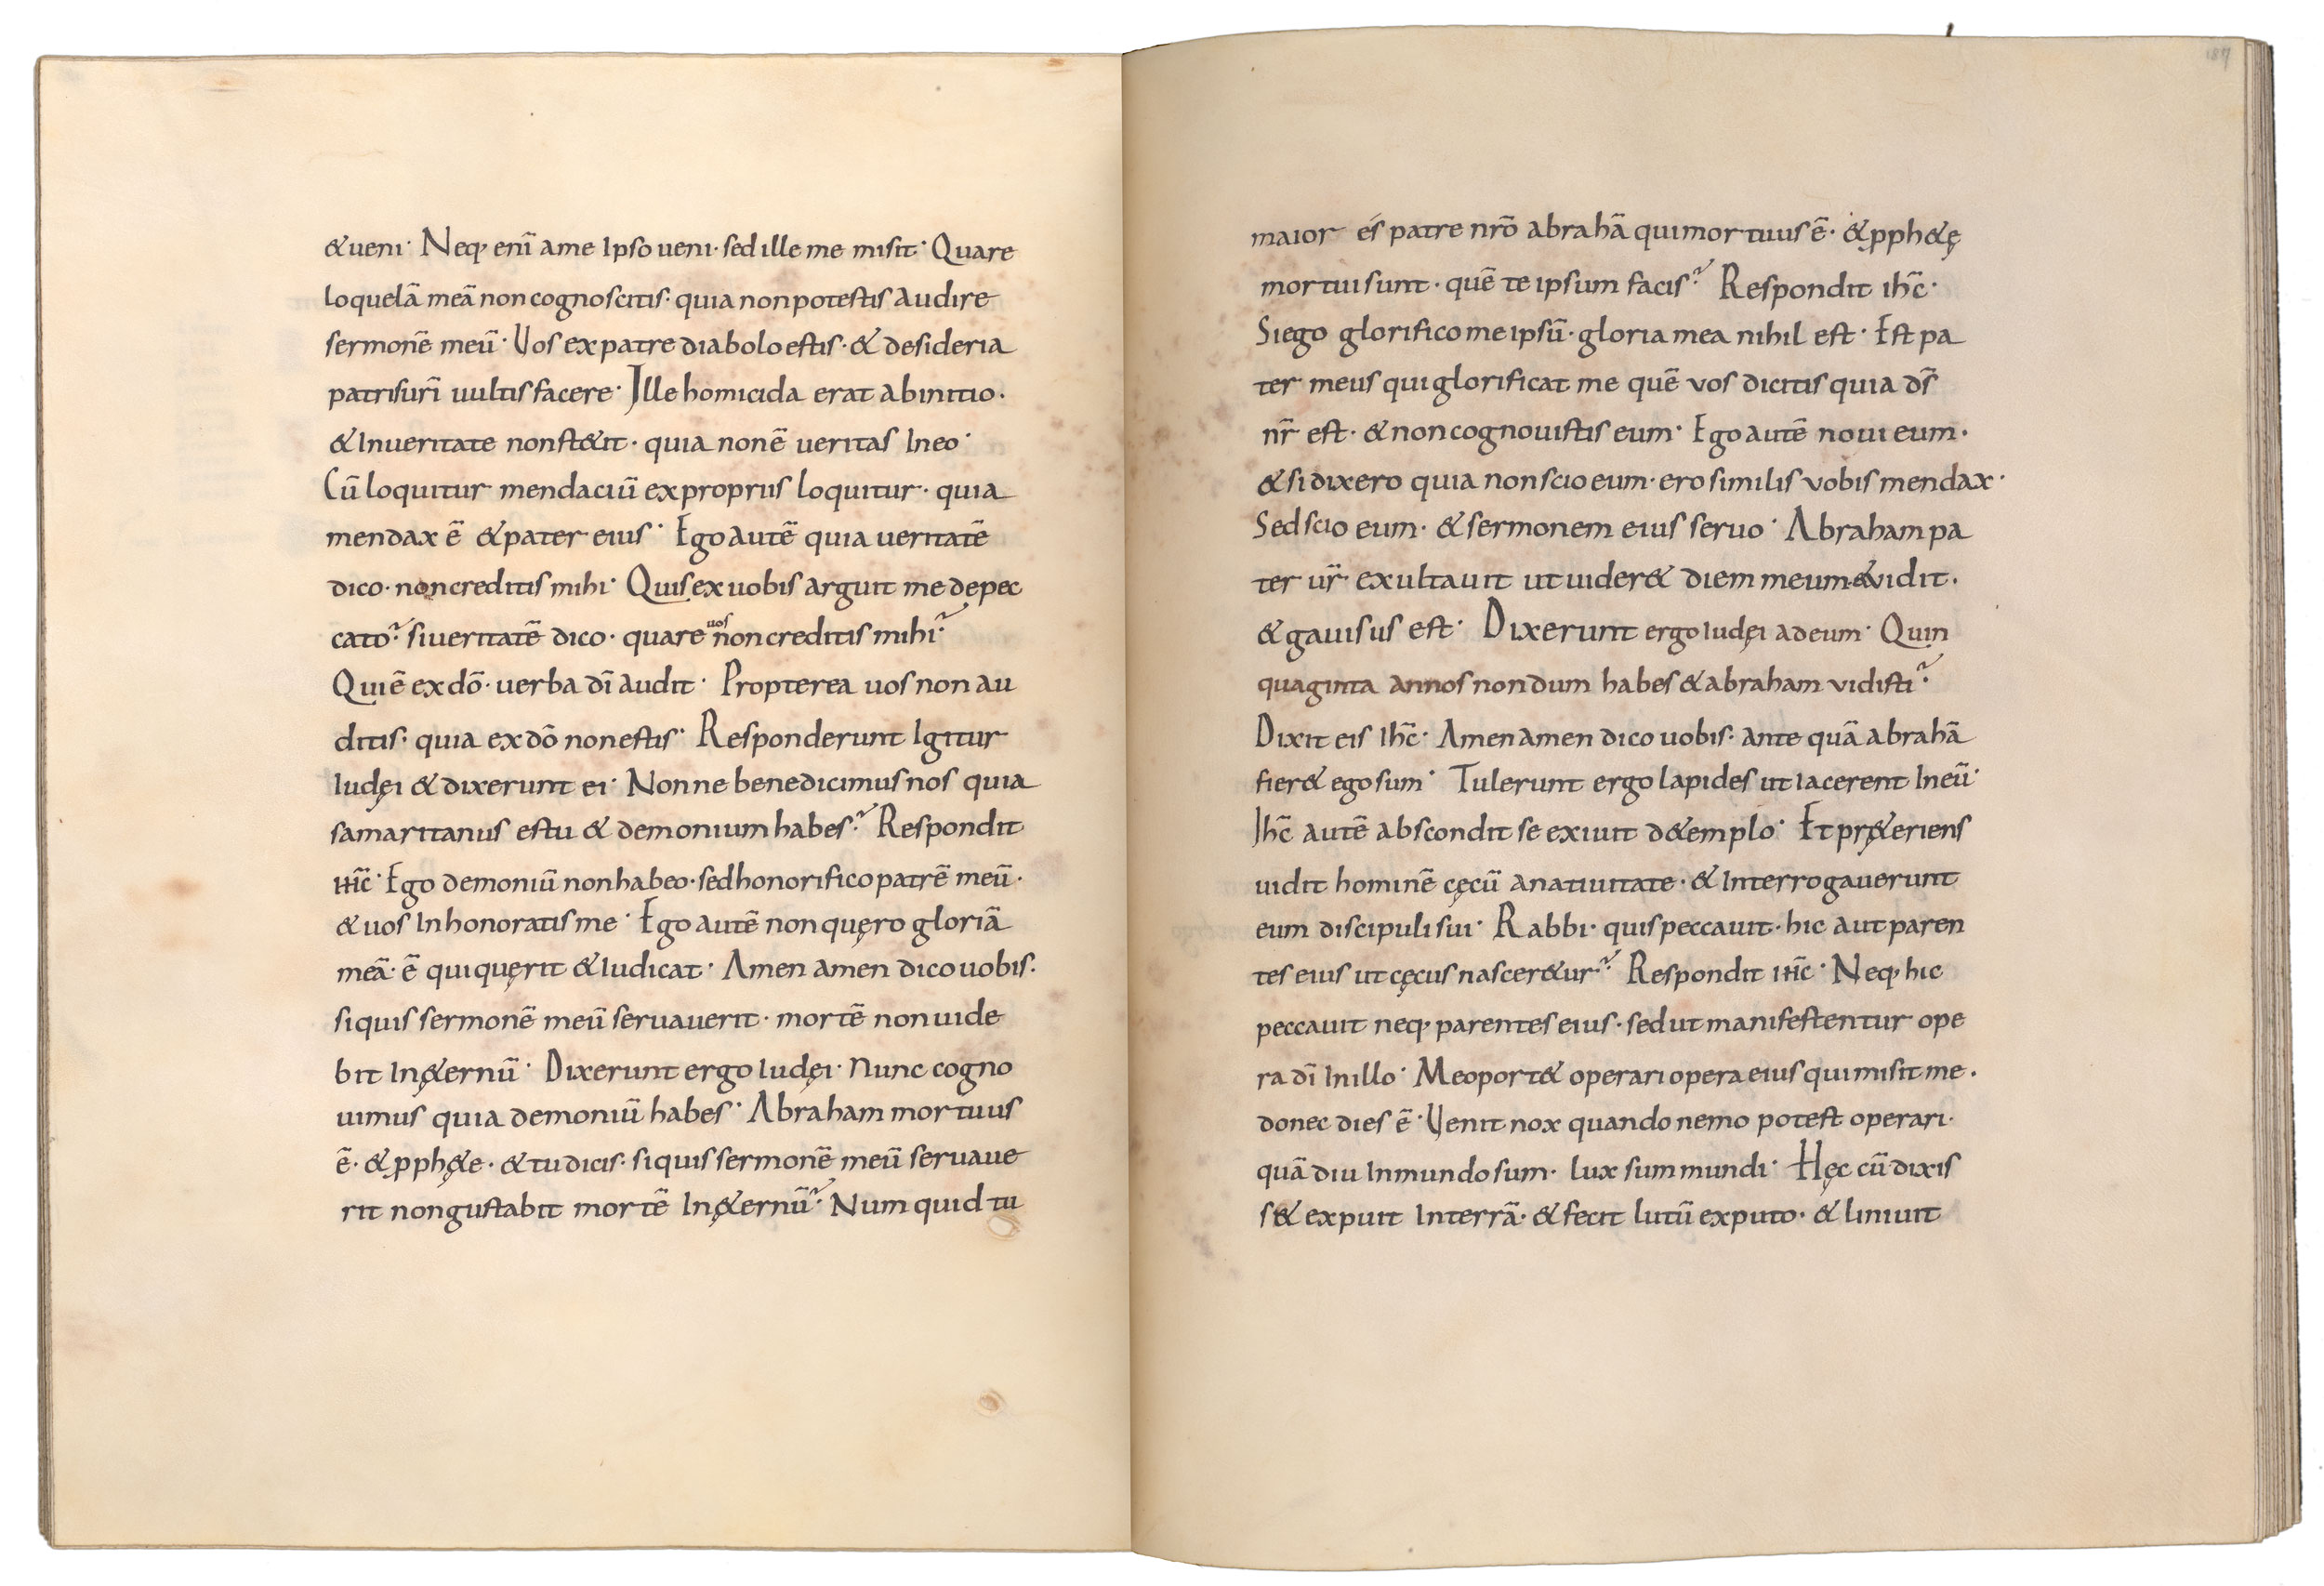 &ueni· Neq; eni᷑ ame Ipso ueni· sed ille me misit· Quare
loquelā meā non cognoscitis· quia non potestis audire
sermonē meū· Uos expatre diabolo estis· & desideria
patris uri᷑ uultis facere· Ille homicida erat abinitio·
& Inueritate nonst&it· quia nonē ueritas Ineo·
Cū loquitur mendaciū exproprиs loquitur· quia
mendax ē & pater eius· Ego autē quia ueritatē
dico· non creditis mihi· Quis ex uobis arguit me depec
cato? si ueritatē dico· quare uos non creditis mihi?
Qui ē ex dō· uerba dī audit· Propterea uos non au
ditis· quia ex dō non estis· Responderunt Igitur
Iudęi & dixerunt ei· Nonne bene dicimus nos quia
samaritanus es tu & demonium habes? Respondit
ihc̄· Ego demoniū non habeo· sed honorifico patrē meū·
& uos Inhonoratis me· Ego autē non quęro gloriā
meā· ē qui quęrit & Iudicat· Amen amen dico uobis·
siquis sermonē meū seruauerit· mortē non uide
bit In&ernū· Dixerunt ergo Iudęi· Nunc cogno
uimus quia demoniū habes· Abraham mortuus
ē· & pph&e· & tu dicis· siquis sermonē meū seruaue
rit non gustabit mortē In&ernū? Num quid tu
187
maior és patre nrō abrahā qui mortuus ē· & pph&ę
mortui sunt· quē te ipsum facis? Respondit ihc̄·
Si ego glorifico me ipsū· gloria mea nihil est· Est pa
ter meus qui glorificat me quē vos dicitis quia ds̄
nr̄ est· & non cognouistis eum· Ego autē noui eum·
& si dixero quia non scio eum· ero similis vobis mendax·
Sed scio eum· & sermonem eius seruo· Abraham pa
ter ur̄ exultauit ut uider& diem meum· & vidit·
& gauisus est· Dixerunt ergo Iudęi ad eum· Quin
quaginta annos nondum habes & abraham vidisti?
Dixit eis Ihc̄· Amen amen dico uobis· ante quā abrahā
fier& ego sum· Tulerunt ergo lapides ut iacerent In eū·
Ihc̄ autē abscondit se exiuit d&emplo· Et pr&eriens
uidit hominē cęcū anatiuitate· & Interrogauerunt
eum discipuli sui· Rabbi· quis peccauit· hic aut paren
tes eius ut cęcus nascer&ur? Respondit ihc̄· Neq; hic
peccauit neq; parentes eius· sed ut manifestentur ope
ra dī In illo· Me oport& operari opera eius qui misit me·
donec dies ē· Uenit nox quando nemo potest operari·
quā diu In mundo sum· lux sum mundi· Hęc cū dixis
s& expuit Interrā· & fecit lutū exputo· & liniuit